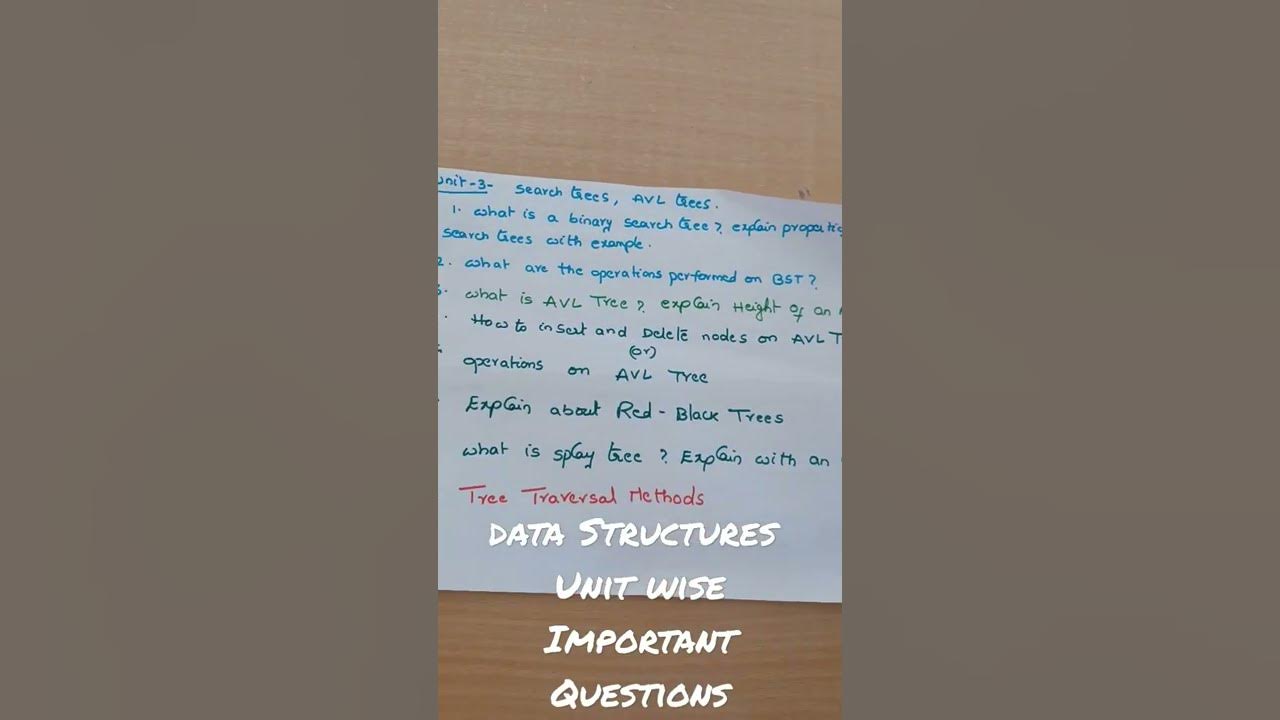 unit-3- search trees, AVL trees.
1. what is a binary search tree? explain
search trees with example.
2. what are the operations performed on BST?
what is AVL Tree? explain Height of an
How to insert and Delete nodes on AVL T
(or)
operations on AVL Tree
Explain about Red-Black Trees
what is splay tree? Explain with an
Tree Traversal Methods
DATA STRUCTURES
UNIT WISE
IMPORTANT
QUESTIONS